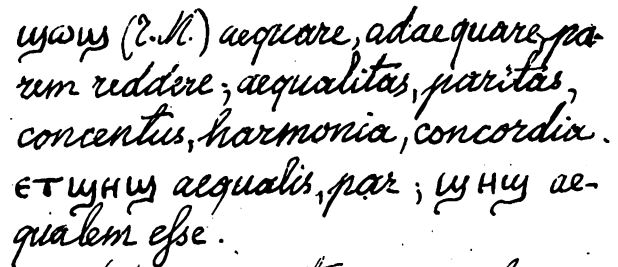 ϣⲱϣ (Ⲧ. Ⲙ.) aequare, adaequare, pa-
rem reddere; aequalitas, paritas,
concentus, harmonia, concordia.
ⲉⲧϣⲏϣ aequalis, par; ϣⲏϣ ae-
qualem esse.